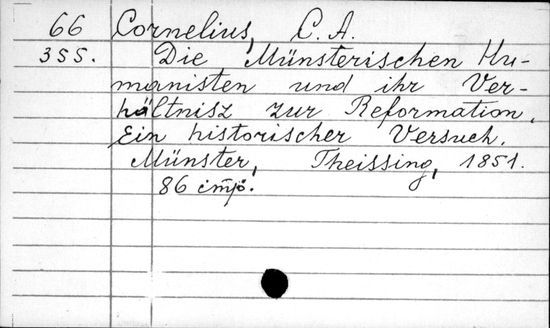 66 Cornelius, C. A.
355. Die Münsterischen Hu-
manisten und ihr Ver-
hältnisz zur Reformation.
Ein historischer Versuch.
Münster, Theissing, 1851.
86